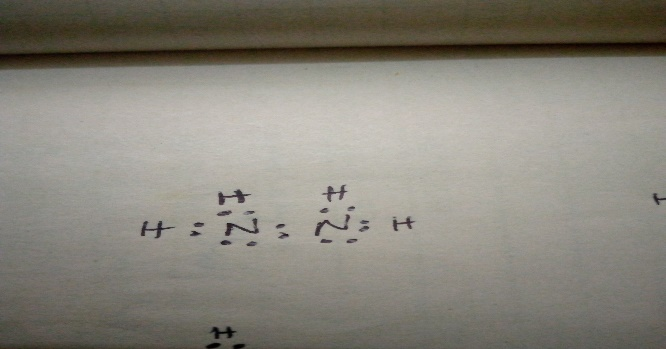 H H
H : N : N : H
H
H